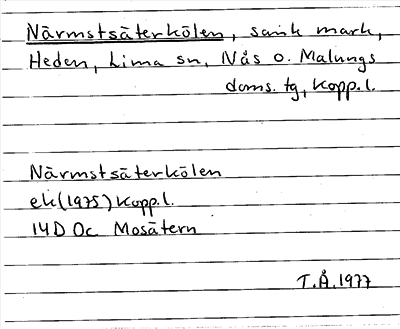 Närmstsäterkölen, sank mark,
Heden, Lima sn, Nås o. Malungs
doms. tg, Kopp.l.
Närmstsäterkölen
ek (1975) Kopp.l.
14D 0c Mosätern
T.Å. 1977